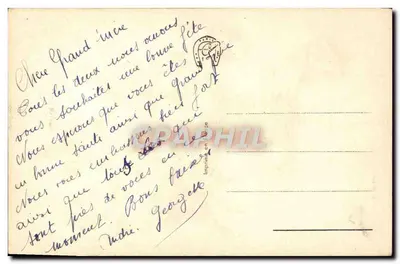 Chère Grand'mère
Tous les deux nous venons
vous souhaiter une bonne fête
Nous espérons que vous êtes
en bonne santé ainsi que Grand Père
Nous vous embrassons bien fort
ainsi que tous ceux qui
sont près de vous en ce
moment. Bons baisers
André. Georgette
CPAPHIL